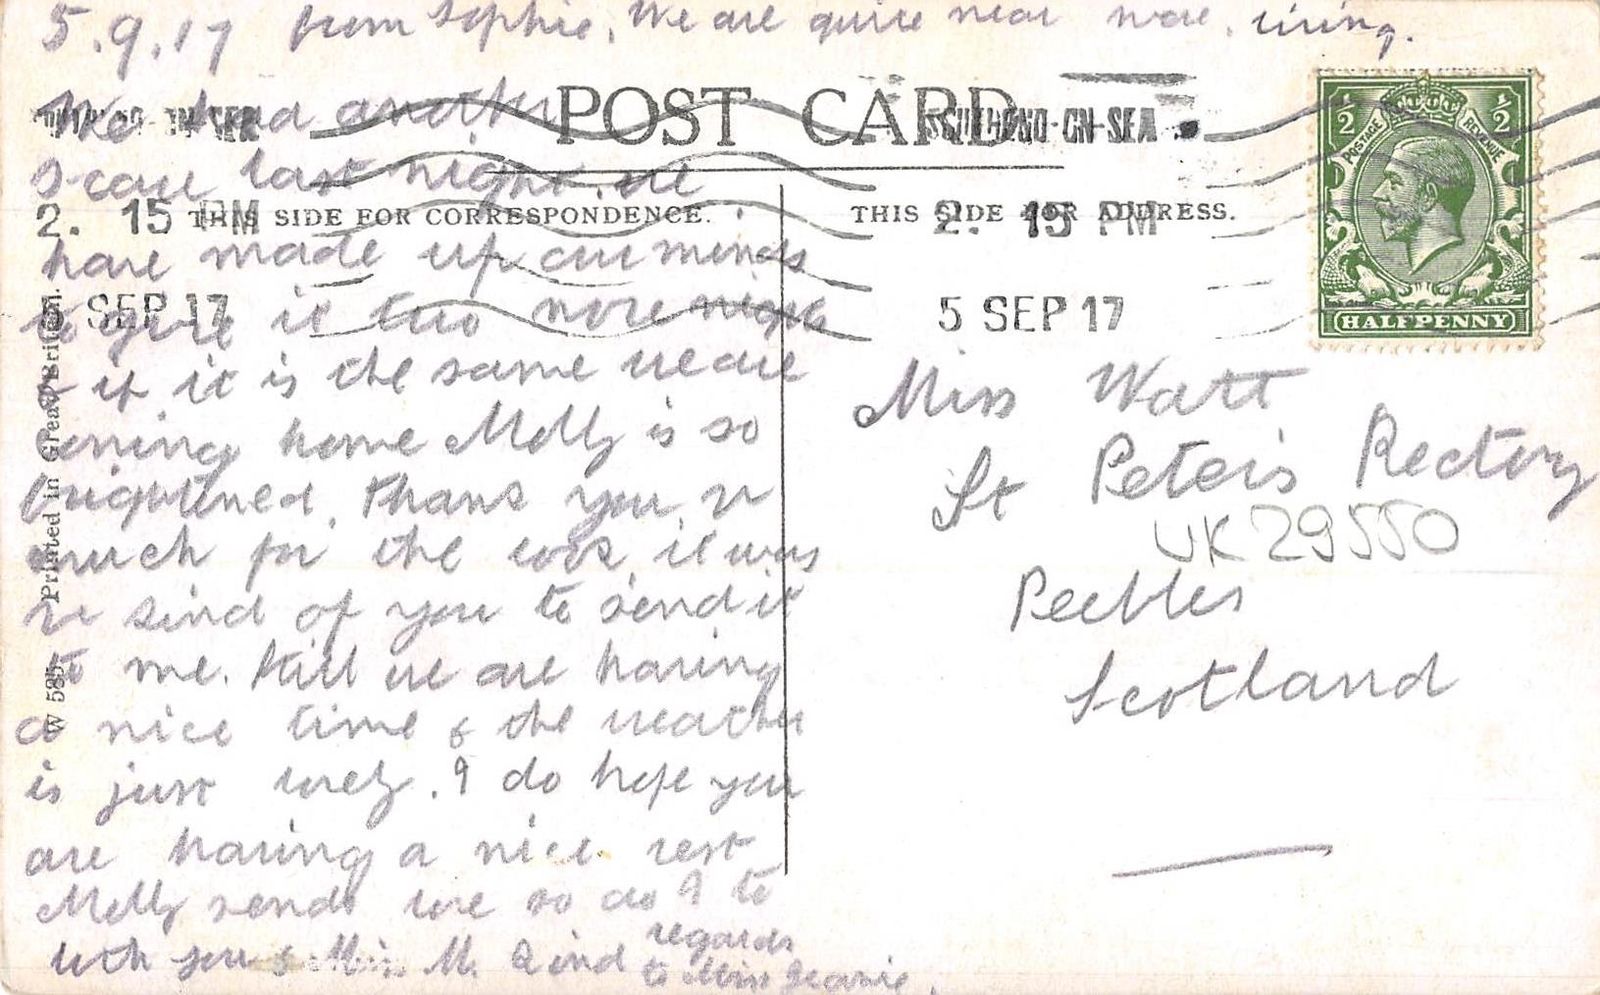 5.9.17 from Sophie. We are quite near now. living.
POST CARD
We had another
scare last night. we
have made up our minds
to give it two more nights
& if it is the same we are
coming home Molly is so
frightened. thank you v
much for the book, it was
v kind of you to send it
to me. Still we are having
a nice time & the weather
is just lovely. I do hope you
are having a nice rest
Molly sends love so do I to
both you & Miss M. Kind regards
to Miss Jeanie.
THIS SIDE FOR CORRESPONDENCE.
THIS SIDE FOR ADDRESS.
-ON-SEA
2. 15 PM
5 SEP 17
-ON-SEA
2. 15 PM
5 SEP 17
POSTAGE REVENUE
½ ½
HALFPENNY
Miss Watt
St Peter's Rectory
UK29550
Peebles
Scotland
W 585 Printed in Great Britain.